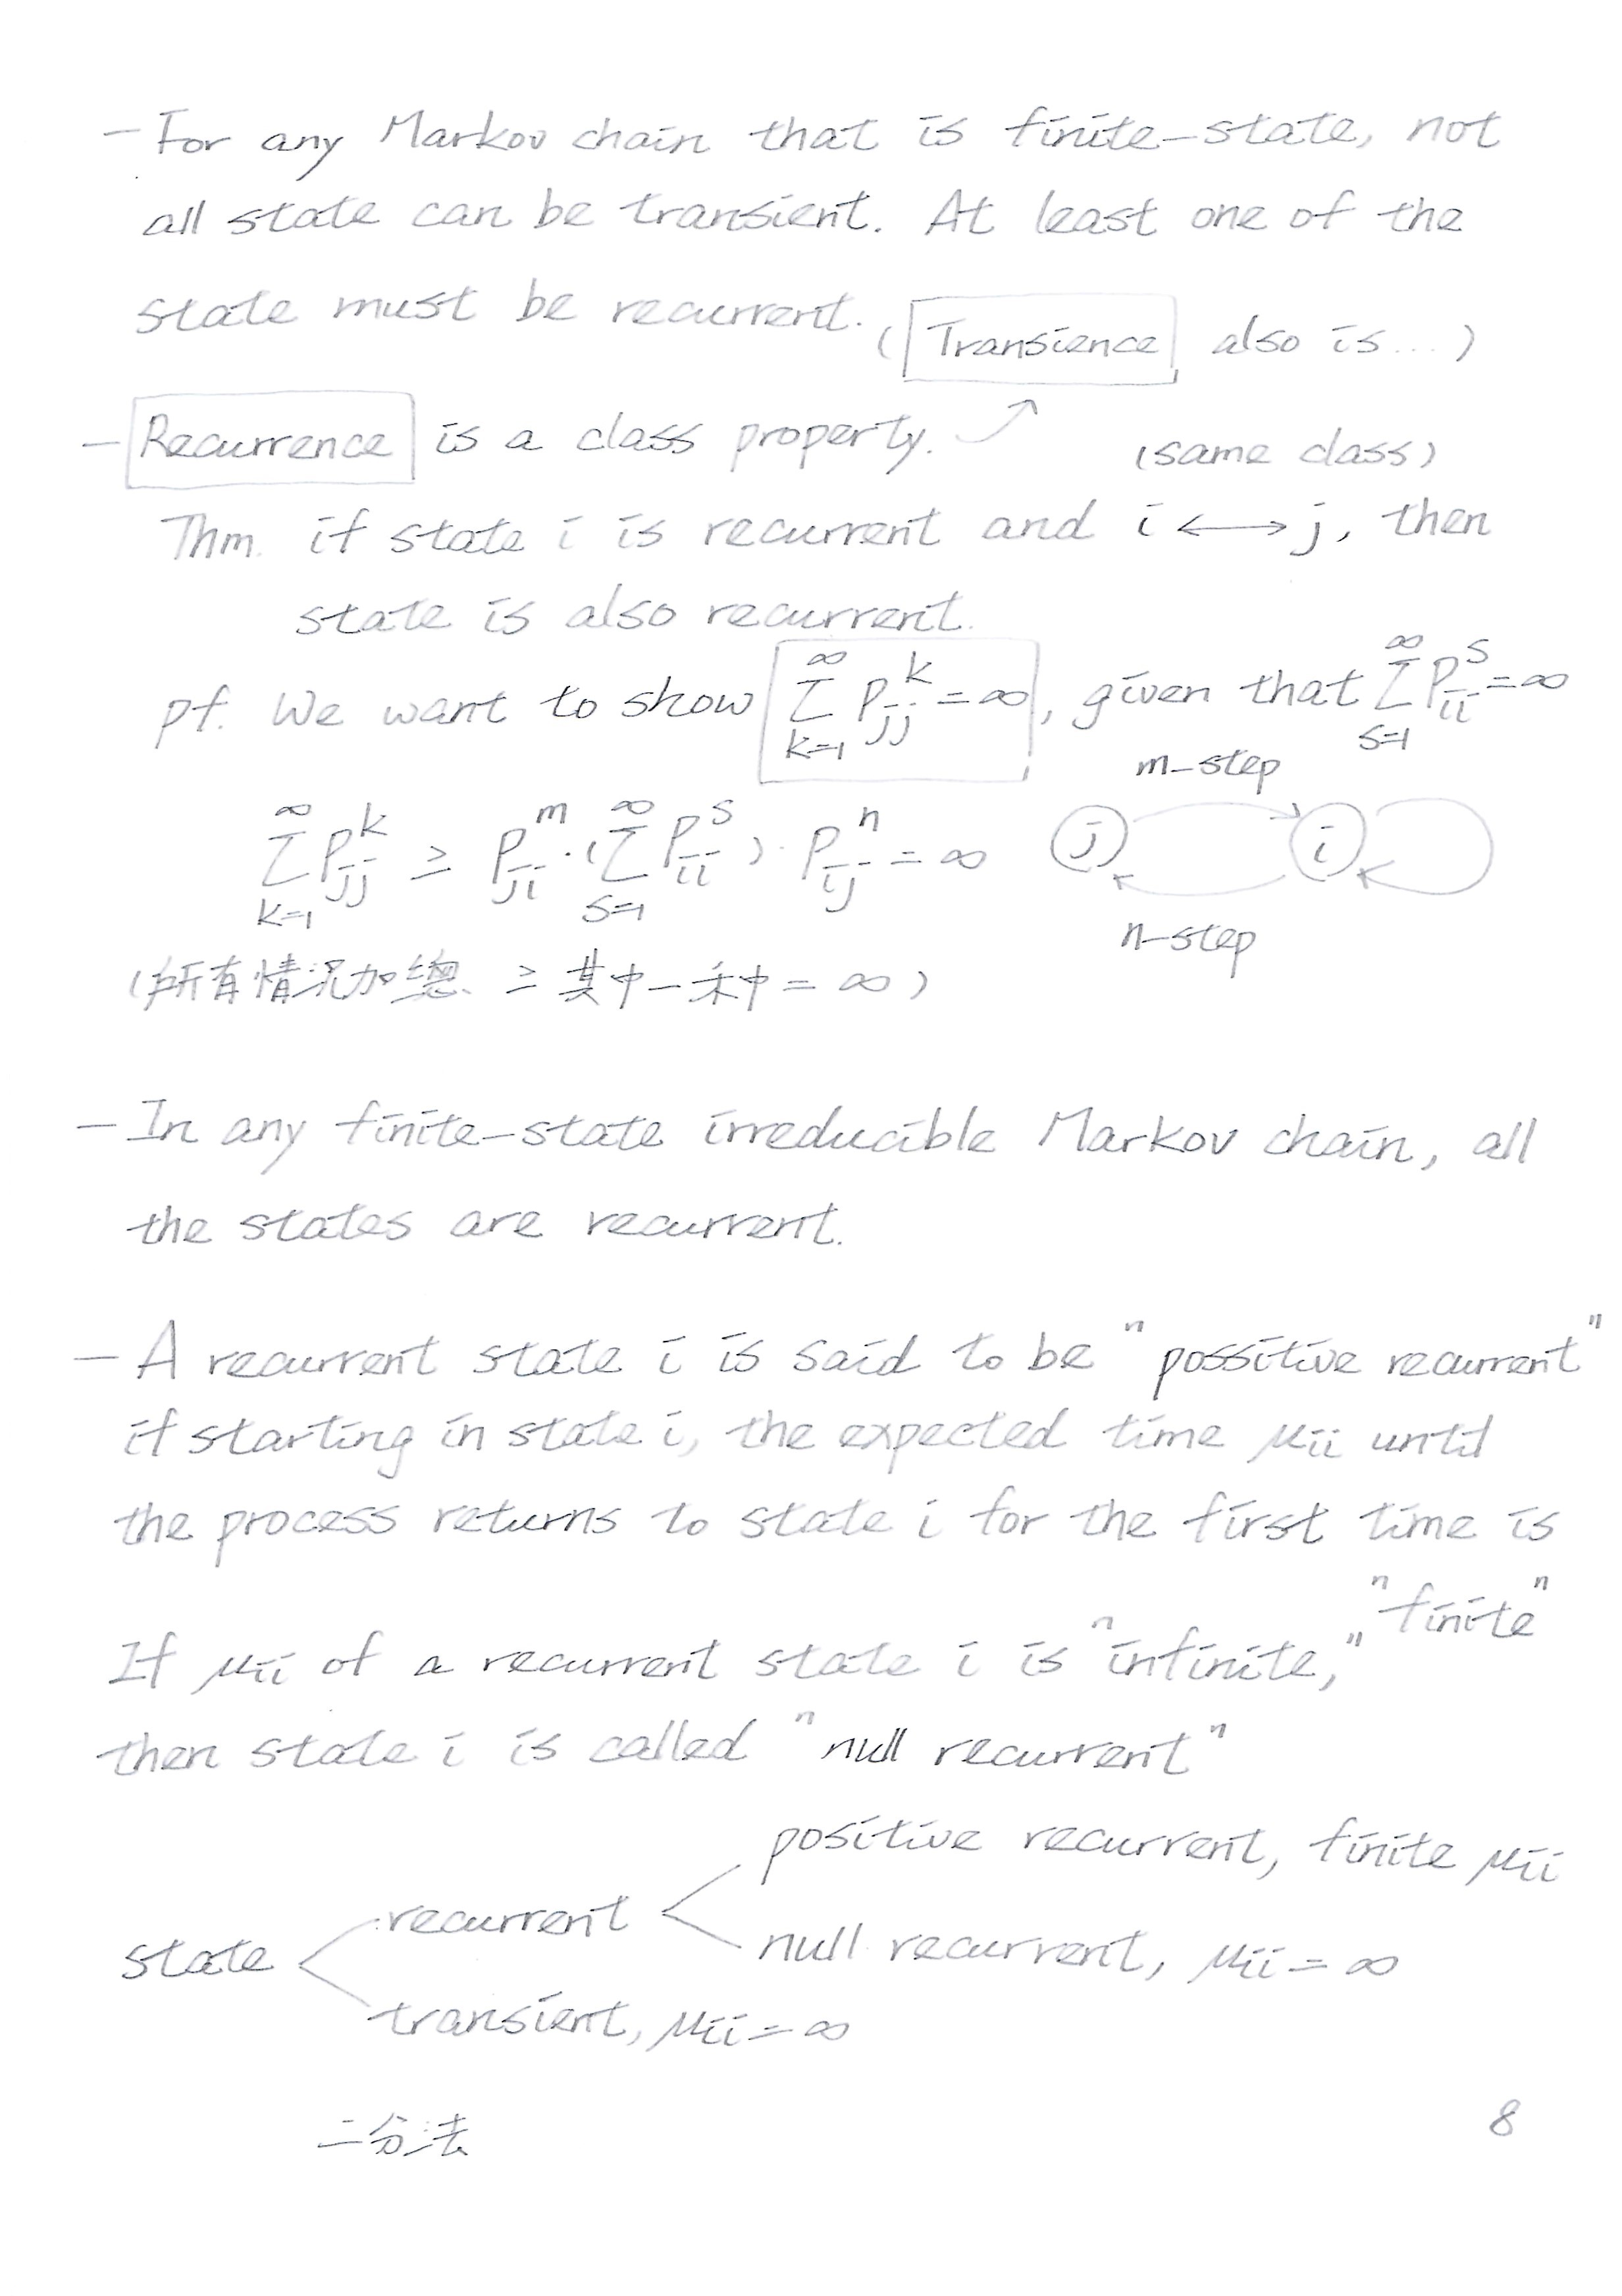 - For any Markov chain that is finite-state, not
all state can be transient. At least one of the
state must be recurrent. (Transience also is...)
- Recurrence is a class property. ↗
(same class)
Thm. if state i is recurrent and i ⟷ j, then
state is also recurrent.
pf. We want to show ∑_{k=1}^{∞} P_{jj}^{k} = ∞, given that ∑_{s=1}^{∞} P_{ii}^{s} = ∞
∑_{k=1}^{∞} P_{jj}^{k} ≥ P_{ji}^{m} · (∑_{s=1}^{∞} P_{ii}^{s}) · P_{ij}^{n} = ∞
m-step
j i
n-step
(所有情況加總 ≥ 其中一种 = ∞)
- In any finite-state irreducible Markov chain, all
the states are recurrent.
- A recurrent state i is said to be "possitive recurrent"
if starting in state i, the expected time μii until
the process returns to state i for the first time is
"finite"
If μii of a recurrent state i is "infinite,"
then state i is called "null recurrent"
positive recurrent, finite μii
recurrent <
null recurrent, μii = ∞
state <
transient, μii = ∞
二分法
8